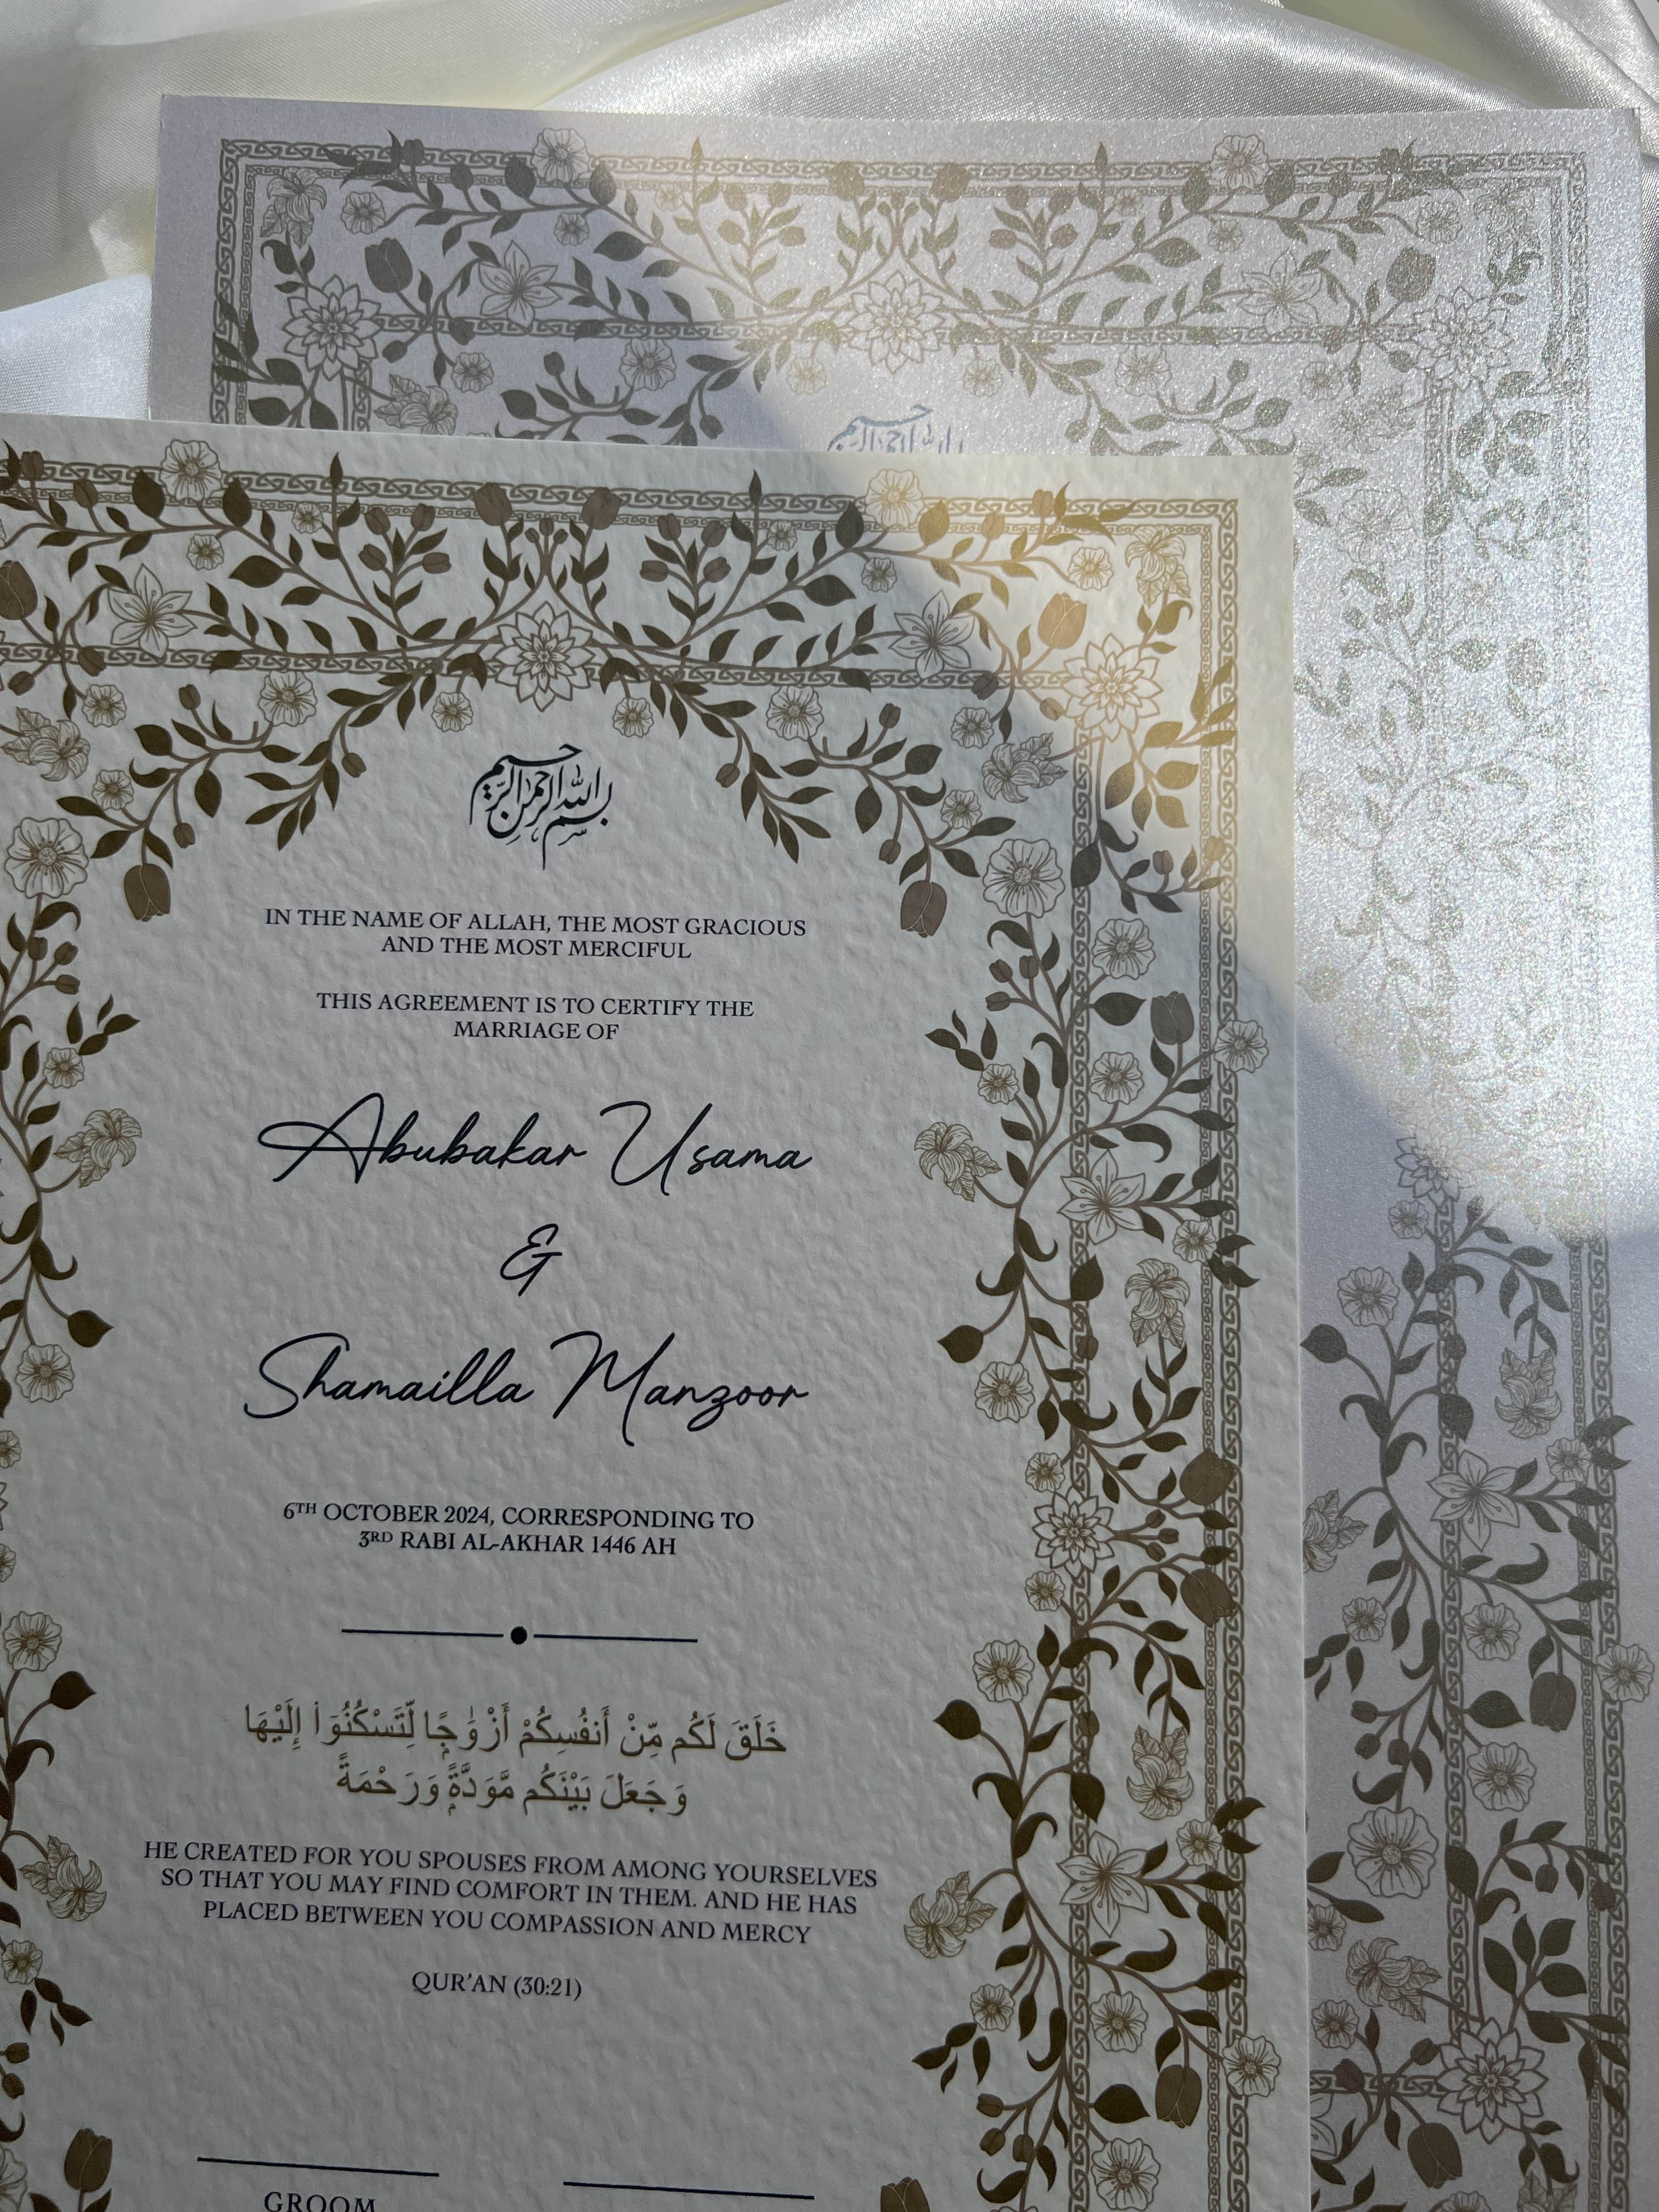 بسم الله الرحمن الرحيم
بسم الله الرحمن الرحيم
IN THE NAME OF ALLAH, THE MOST GRACIOUS
AND THE MOST MERCIFUL
THIS AGREEMENT IS TO CERTIFY THE
MARRIAGE OF
Abubakar Usama
&
Shamailla Manzoor
6TH OCTOBER 2024, CORRESPONDING TO
3RD RABI AL-AKHAR 1446 AH
خَلَقَ لَكُم مِّنْ أَنفُسِكُمْ أَزْوَٰجًۭا لِّتَسْكُنُوٓا۟ إِلَيْهَا
وَجَعَلَ بَيْنَكُم مَّوَدَّةًۭ وَرَحْمَةً
HE CREATED FOR YOU SPOUSES FROM AMONG YOURSELVES
SO THAT YOU MAY FIND COMFORT IN THEM. AND HE HAS
PLACED BETWEEN YOU COMPASSION AND MERCY
QUR'AN (30:21)
GROOM